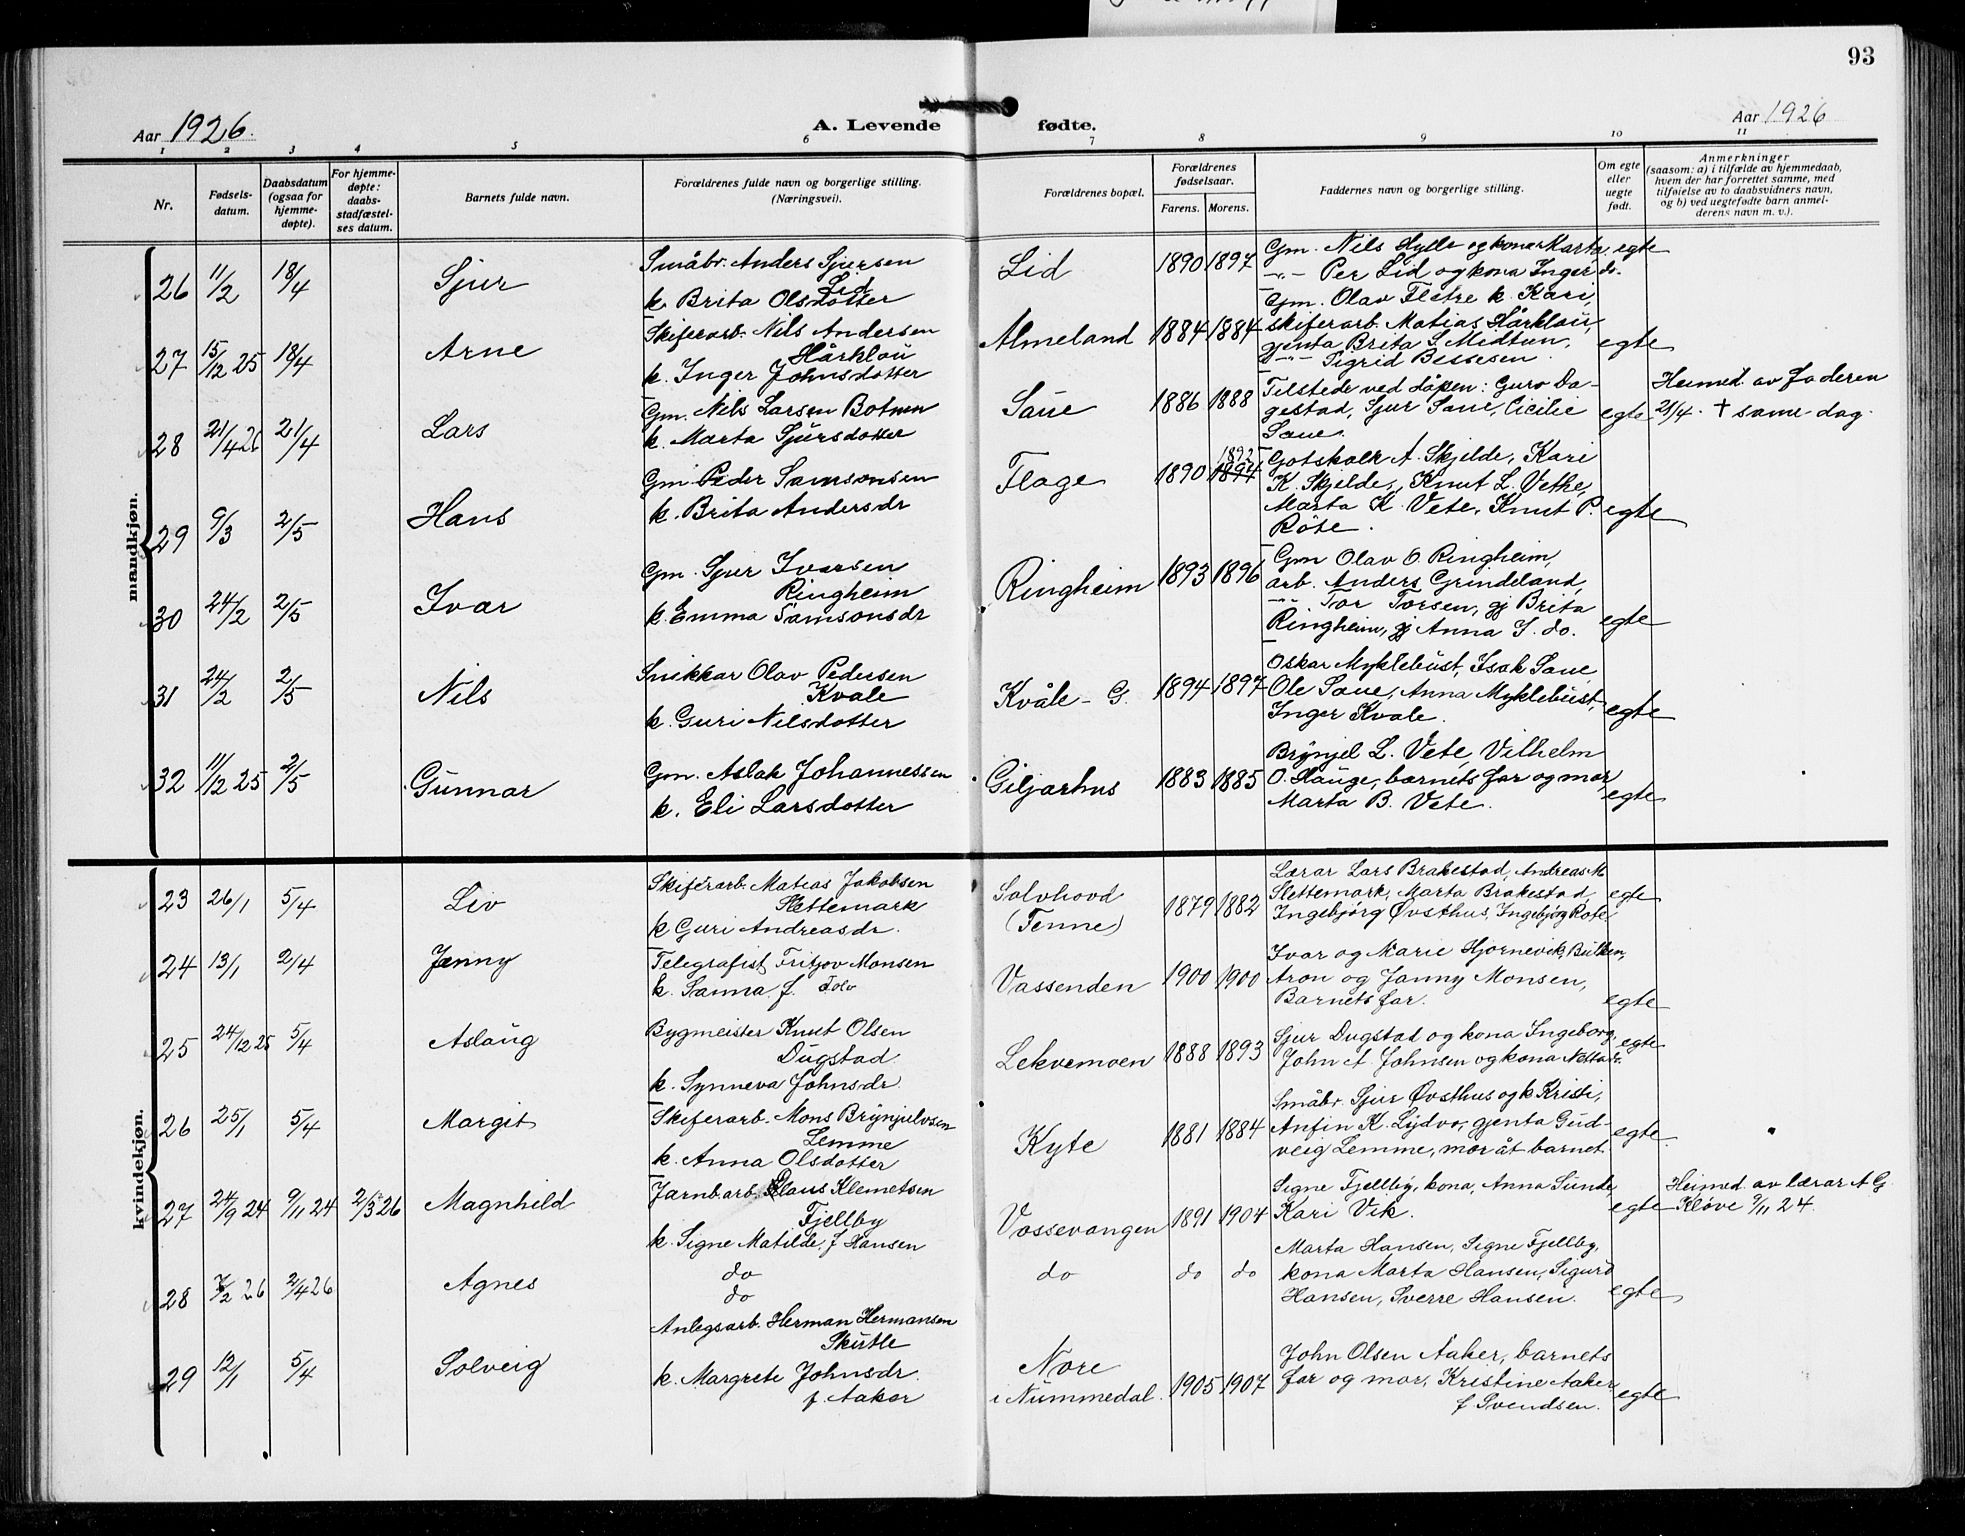 93
Aar 1926.
A. Levende
fødte.
Aar 1926
1 2 3 4 5 6 7 8 9 10 11
Nr.
Fødsels-
datum.
Daabsdatum
(ogsaa for
hjemme-
døpte).
For hjemme-
døpte:
daabs-
stadfæstel-
ses datum.
Barnets fulde navn.
Forældrenes fulde navn og borgerlige stilling.
(Næringsvei).
Forældrenes bopæl.
Forældrenes
fødselsaar.
Farens. Morens.
Faddernes navn og borgerlige stilling.
Om egte
eller
uegte
født.
Anmerkninger
(saasom: a) i tilfælde av hjemmedaab,
hvem der har forrettet samme, med
tilføielse av to daabsvidners navn,
og b) ved uegtefødte barn anmel-
derens navn m. v.).
mandkjøn.
26 11/2 18/4 Sjur
Småbr. Anders Sjursen
Lid
k. Brita Olsdotter
Lid 1890 1897
Gm. Nils Hylle og kona Marta
-"- Per Lid og kona Inger do.
egte
27 15/12 25 18/4 Arne
Skiferarb. Nils Andersen
Hårklau
k. Inger Johnsdotter
Almeland 1884 1884
Gm. Olav Flatre k. Kari,
skiferarb. Matias Hårklau,
gjenta Brita S Midtun,
-"- Sigrid Bessesen.
egte
28 21/4 26 21/4 Lars
Gm. Nils Larsen Botnen
k. Marta Sjursdotter
Saue 1886 1888
Tilstede ved dåpen: Guro Da-
gestad, Sjur Saue, Cicilie
Saue.
egte
Heimed. av faderen
21/4. † same dag.
29 9/3 2/5 Hans
Gm Peder Samsonsen
k. Brita Andersdr
Flage 1890 1894 1892
Gotskalk A. Skjelde, Kari
K. Skjelde, Knut L. Vethe,
Marta K. Vete, Knut P.
Röte.
egte
30 24/2 2/5 Ivar
Gm. Sjur Ivarsen
Ringheim
k. Emma Samsonsdr
Ringheim 1893 1896
Gm Olav O. Ringheim,
arb. Anders Grindeland,
-"- Tor Torsen, gj Brita
Ringheim, gj Anna I. do.
egte
31 24/2 2/5 Nils
Snikkar Olav Pedersen
Kvale
k. Guri Nilsdotter
Kvåle - G. 1894 1897
Oskar Myklebust, Isak Saue,
Ole Saue, Anna Myklebust,
Inger Kvale.
egte
32 11/12 25 2/5 Gunnar
Gm. Aslak Johannessen
k. Eli Larsdotter
Giljarhus 1883 1885
Brynjel L. Vete, Vilhelm
O. Hauge, barnets far og mor,
Marta B. Vete.
egte
kvindekjøn.
23 26/1 5/4 Liv
Skiferarb. Matias Jakobsen
Slettemark
k Guri Andreasdr.
Salvhovd
(Tenne)
1879 1882
Lærar Lars Brakestad, Andreas M
Slettemark, Marta Brakestad,
Ingebjörg Øvsthus, Ingebjörg Rote
egte
24 13/1 2/4 Jenny
Telegrafist Fritjov Monsen
k. Sanna f.
Vassenden 1900 1900
Ivar og Marie Hjornevik, Bulken,
Aron og Janny Monsen,
Barnets far.
egte
25 24/12 25 5/4 Aslaug
Bygmeister Knut Olsen
Dugstad
k. Synneva Johnsdr.
Lekvemoen 1888 1893
Sjur Dugstad og kona Ingeborg,
John A Johnsen og kona Netta do.
egte
26 25/1 5/4 Margit
Skiferarb. Mons Brynjelvsen
Lemme
k. Anna Olsdotter
Kyte 1881 1884
Småbr. Sjur Øvsthus og k Kristi,
Anfin K. Lydvo, gjenta Gud-
veig Lemme, mor åt barnet.
egte
27 24/9 24 9/11 24 2/3 26 Magnhild
Jarnb.arb. Klaus Klemetsen
Fjellby
k. Signe Matilde, f Hansen
Vossevangen 1891 1904
Signe Fjellby, kona, Anna Sunde,
Kari Vik.
egte
Heimed. av lærar A G.
Kløve 9/11 24.
28 7/2 26 2/4 26 Agnes
do
do
do do do
Marta Hansen, Signe Fjellby,
kona Marta Hansen, Sigurd
Hansen, Sverre Hansen.
egte
29 12/1 5/4 Solveig
Anlegsarb. Herman Hermansen
Skutle
k. Margrete Johnsdr.
f. Aaker
Nore
i Nummedal.
1905 1907
John Olsen Aaker, barnets
far og mor, Kristine Aaker
f. Svendsen.
egte